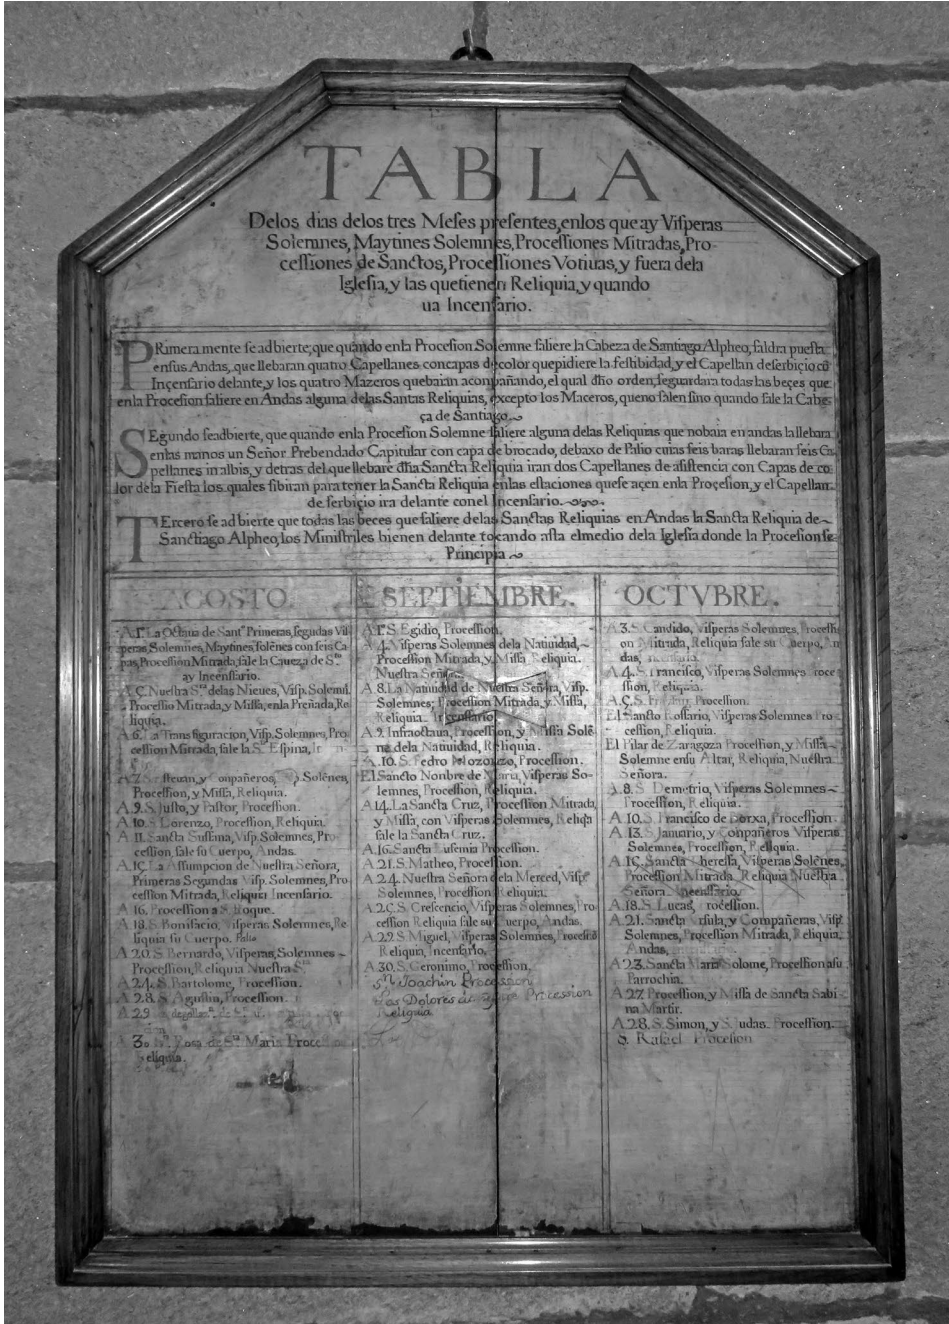 TABLA
Delos dias delos tres Meses presentes, enlos que ay Visperas
Solemnes, Maytines Solemnes, Processiones Mitradas, Pro-
cessiones de Sanctos, Processiones Votiuas, y fuera dela
Iglesia, y las quetienen Reliquia, y quando
ua Incensario.
PRimera mente se adbierte, que quando enla Procesion Solemne saliere la Cabeza de Santiago Alpheo, saldra puesta
ensus Andas, que llebaran quatro Capellanes concapas de color quepidiere la festibidad, y el Capellan deserbiçio cō
Inçensario delante, y los quatro Mazeros quebaran aconpañando, el qual dho orden, seguardara todas las beçes que
enla Procesion saliere en Andas alguna delas Santas Reliquias, excepto los Maceros, queno salen sino quando sale la Cabe-
ça de Santiago.
SEgundo seadbierte, que quando enla Procesion Solemne saliere alguna delas Reliquias que nobaia en andas la llebara
enlas manos un Señor Prebendado Capitular con capa de brocado, debaxo de Palio cuias seis baras llebaran seis Ca-
pellanes in albis, y detras del que llebare dha Sancta Reliquia iran dos Capellanes de asistencia con Capas de co-
lor dela Fiesta los quales sibiran para tener la Sancta Reliquia enlas estaciones quese açen enla Proçesion, y el Capellan
de serbiçio ira delante conel Incensario.
TErcero se adbierte que todas las beces que saliere delas Sanctas Reliquias en Andas la Sancta Reliquia de
Sanctiago Alpheo, los Ministriles bienen delante tocando asta elmedio dela Iglesia donde la Procesion se
Principia
AGOSTO.
SEPTIEMBRE.
OCTVBRE.
A.1º. La Octaua de Santº Primeras, segudas Vis-
peras Solemnes, Maytines, solēnes con seis Ca-
pas, Procession Mitrada, sale la Caueza de S.to
ay Incensario.
A.5. Nuestra S.ra delas Nieues, Visp. Solemn.
Processiō Mitrada, y Missa, enla Preñada, Re-
liquia.
A.6. La Transfiguracion, Visp. Solemnes, Pro-
cession Mitrada, sale la S.ta Espina,
A.7. S. Esteuan, y Conpañeros, Visp. Solēnes,
Procession, y Missa, Reliquia.
A.9. S. Justo, y Pastor, Procession.
A.10. S. Lorenzo, Procession, Reliquia.
A.11. Sancta Susana, Visp. Solemnes, Pro-
cession, sale su Cuerpo, Andas.
A.15. La Assumpcion de Nuestra Señora,
Primeras Segundas Visp. Solemnes, Pro
cession Mitrada, Reliquia Incensario.
A.16. Procession a S. Roque.
A.18. S. Bonifacio, Visperas Solemnes, Re
liquia su Cuerpo. Palio
A.20. S. Bernardo, Visperas, Solemnes
Procession, Reliquia Nuestra S.ra
A.24. S. Bartolome, Procession.
A.28. S. Agustin, Procession.
A.29
A 30 Rosa de S.ta Maria Procession
Reliquia.
A.1º. S. Egidio, Procession.
A.4. Visperas Solemnes dela Natiuidad,
Procession Mitrada, y Missa, Reliquia.
Nuestra Señora.
A.8. La Natiuidad de Nuestra Señora, Visp.
Solemnes; Procession Mitrada, y Missa,
Reliquia. Incensario
A.9. Infraoctaua, Procession, y Missa Solē-
ne dela Natiuidad, Reliquia.
A.10. S. Pedro Mozonzo, Procession.
El Sancto Nonbre de Maria, Visperas So-
lemnes, Procession, Reliquia.
A.14. La Sancta Cruz, Procession Mitrada,
y Missa, con Visperas Solemnes, Reliqa
sale la Sancta Cruz.
A.16. Sancta Eufemia Procession.
A.21. S. Matheo, Procession.
A.24. Nuestra Señora dela Merced, Visp.s
Solemnes, Procession Reliquia.
A.25. S. Crescencio, Visperas Solemnes, Pro
cession Reliquia sale su Cuerpo, Andas.
A.29. S. Miguel, Visperas Solemnes, Procesiō
Reliquia, Incensario.
A.30. S. Geronimo, Procession.
S.n Joachin Procession
Los Dolores Procession
Reliquia
A.3. S. Candido, Visperas Solemnes, Processi-
on Mitrada, Reliquia sale su Cuerpo, An
das,
A.4. S. Francisco, Visperas Solemnes Proce
ssion, Reliquia.
A.5. S. Froylan, Procession.
El Sancto Rossario, Visperas Solemnes Pro
cession, Reliquia.
El Pilar de Zaragoza Procession, y Missa
Solemne ensu Altar, Reliquia, Nuestra
Señora.
A.8. S. Demetrio, Visperas Solemnes
Procession, Reliquia.
A.10. S. Francisco de Borxa, Procession.
A.13. S. Januario, y Conpañeros Visperas
Solemnes, Procession, Reliquia.
A.15. Sancta Theressa, Visperas Solēnes,
Procession Mitrada, Reliquia Nuestra
Señora. Incenssario.
A.18. S. Lucas, Procession.
A.21. Sancta Vrsula, y Compañeras, Visp.
Solemnes, Procession Mitrada, Reliquia,
Andas,
A.23. Sancta Maria Solome, Procession asu
Parrochia.
A.27. Procession, y Missa de Sancta Sabi
na Martir.
A.28. S. Simon, y S. Judas. Procession.
S. Rafael Procesion